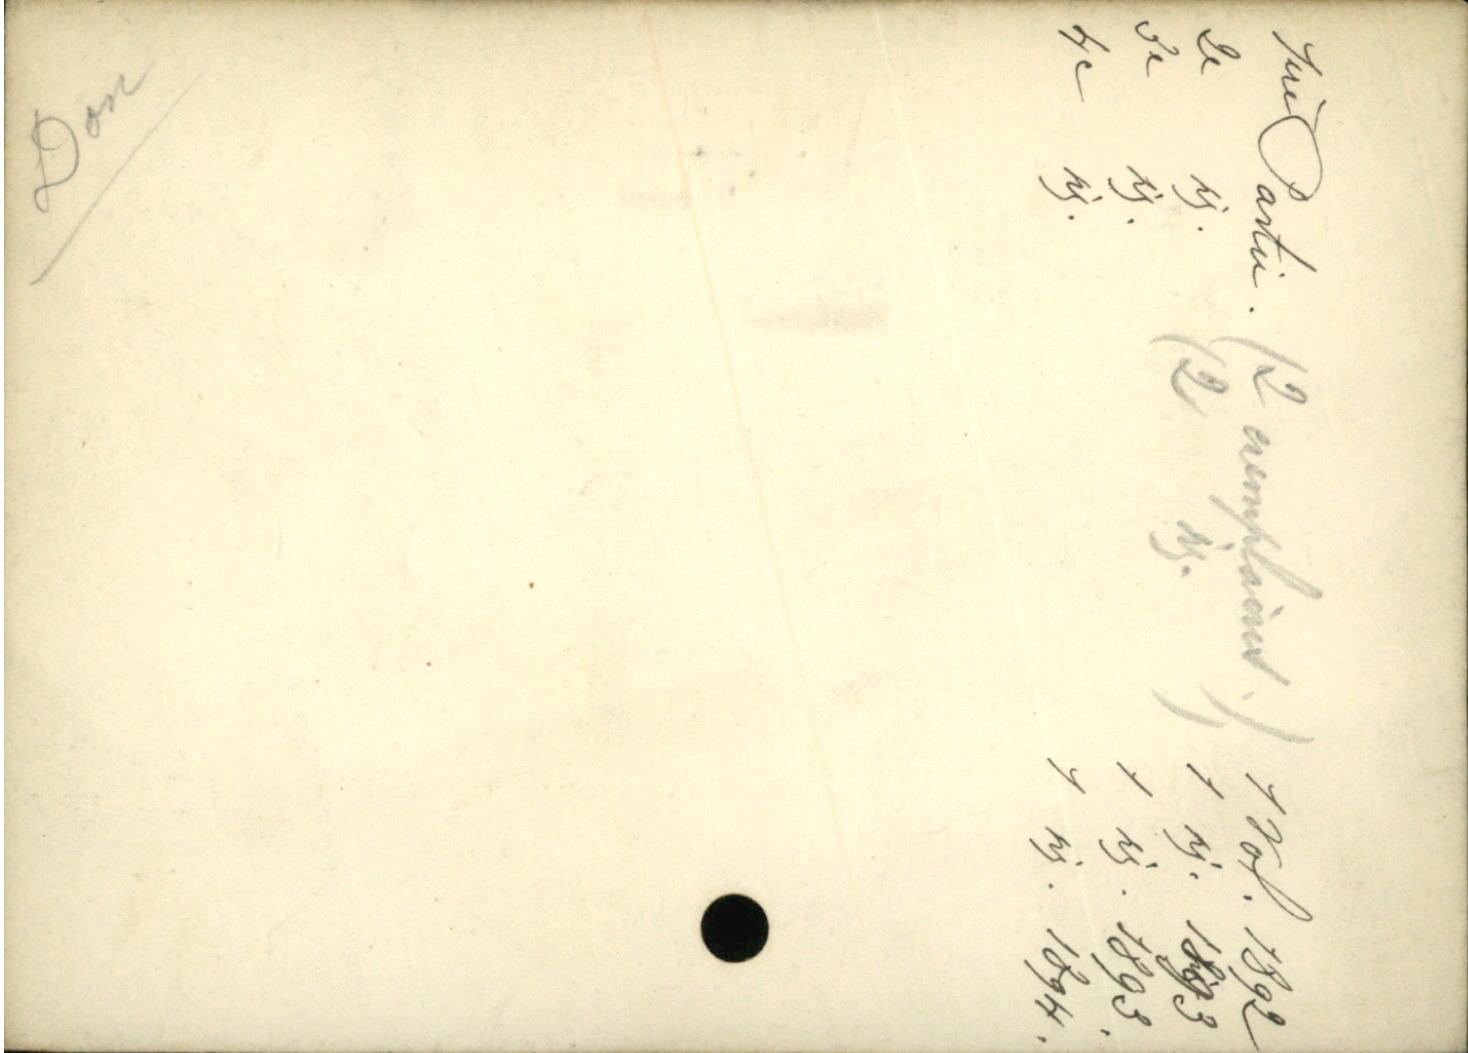 1ère Partie. (2 exemplaires.) 1 Vol. 1892
2e id. (2 id.) 1 id. 1893
3e id. 1 id. 1893.
4e id. 1 id. 1894.
Don